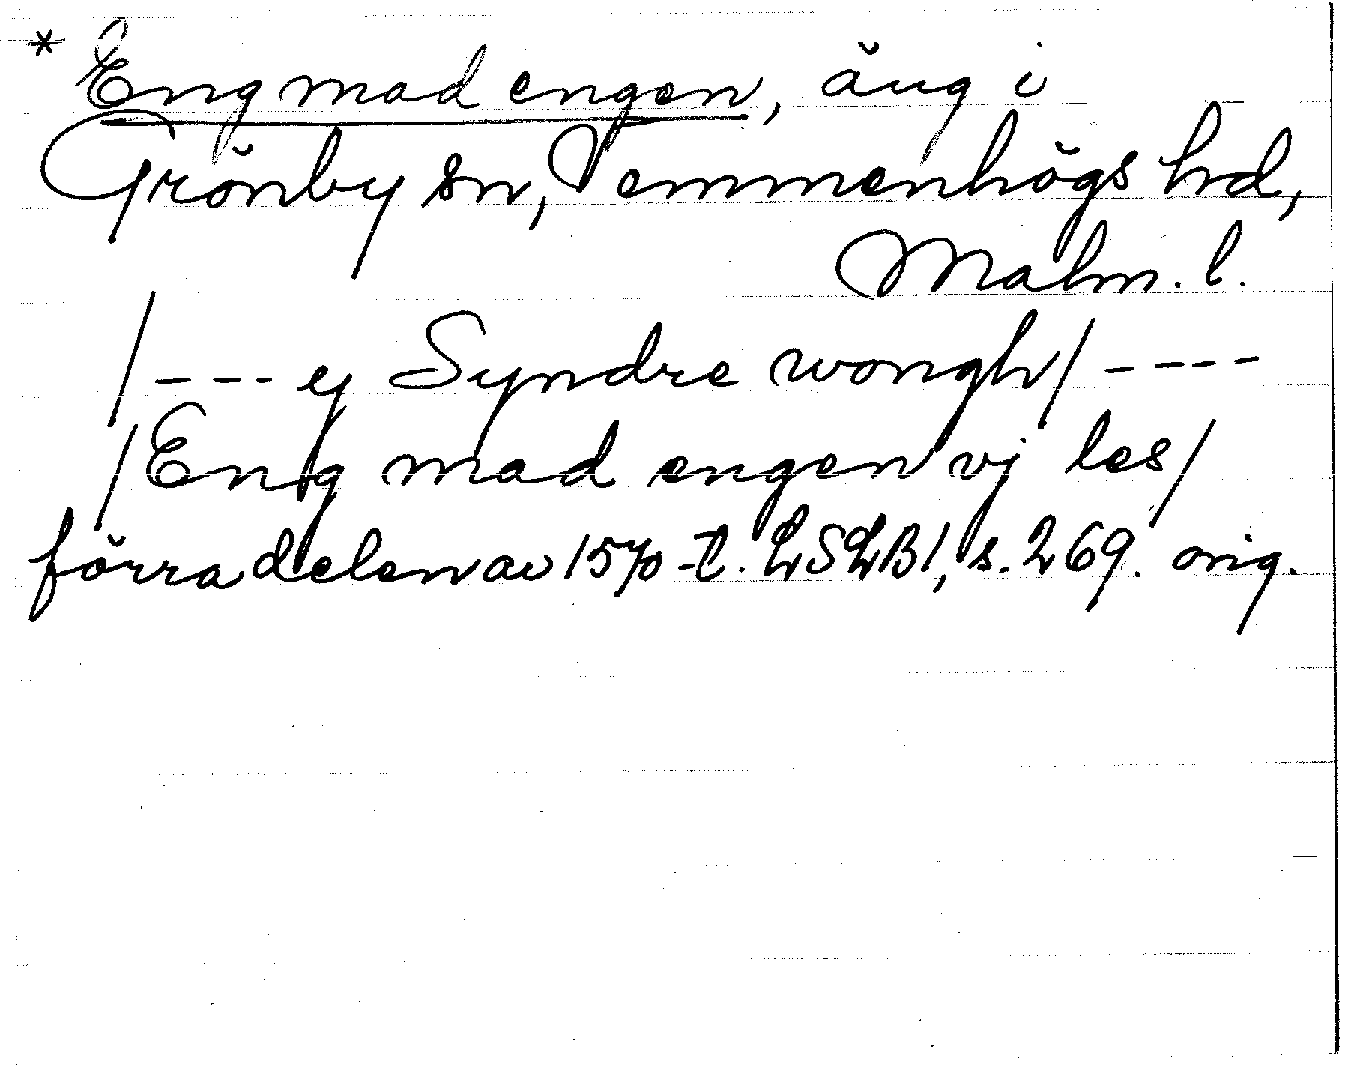 * Eng mad engen, äng i
Grönby sn, Vemmenhögs hrd,
Malm. l.
/--- ej Syndre wongh/----
/Eng mad engen vj les/
förra delen av 1570-t. LSLB1, s. 269. orig.